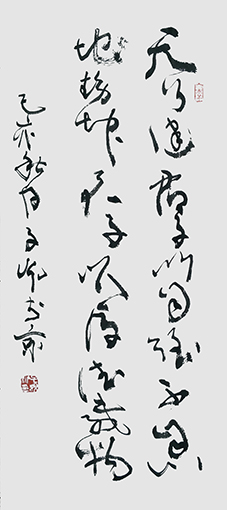 天行健君子以自强不息
地势坤君子以厚德载物
己亥秋月